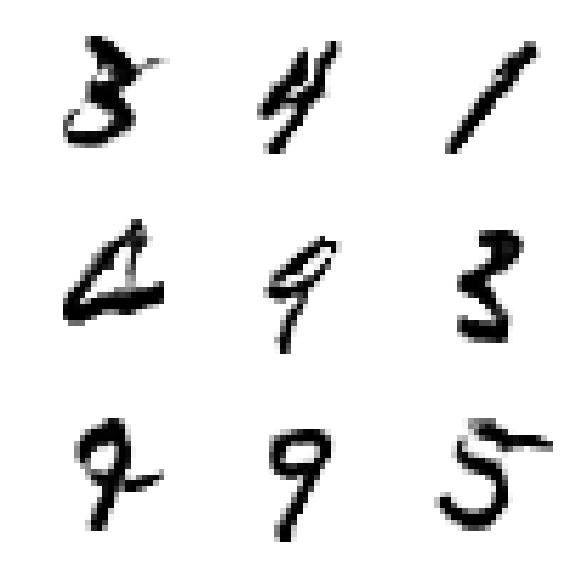 3 4 1
4 9 3
9 9 5